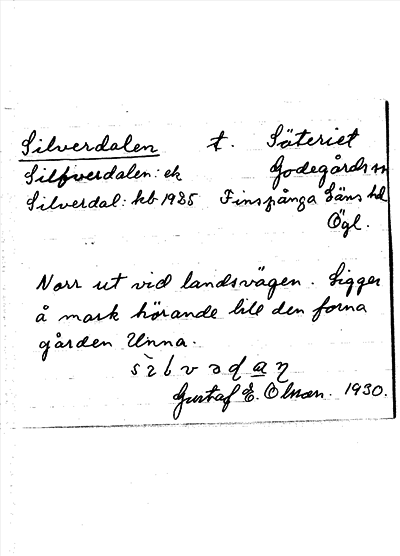 Silverdalen t. Säteriet
Silfverdalen: ek Godegårds sn
Silverdal: kb 1925 Finspånga Läns hd
Ögl.
Norr ut vid landsvägen. Ligger
å mark hörande till den forna
gården Unna.
Gustaf E. Olson. 1930.